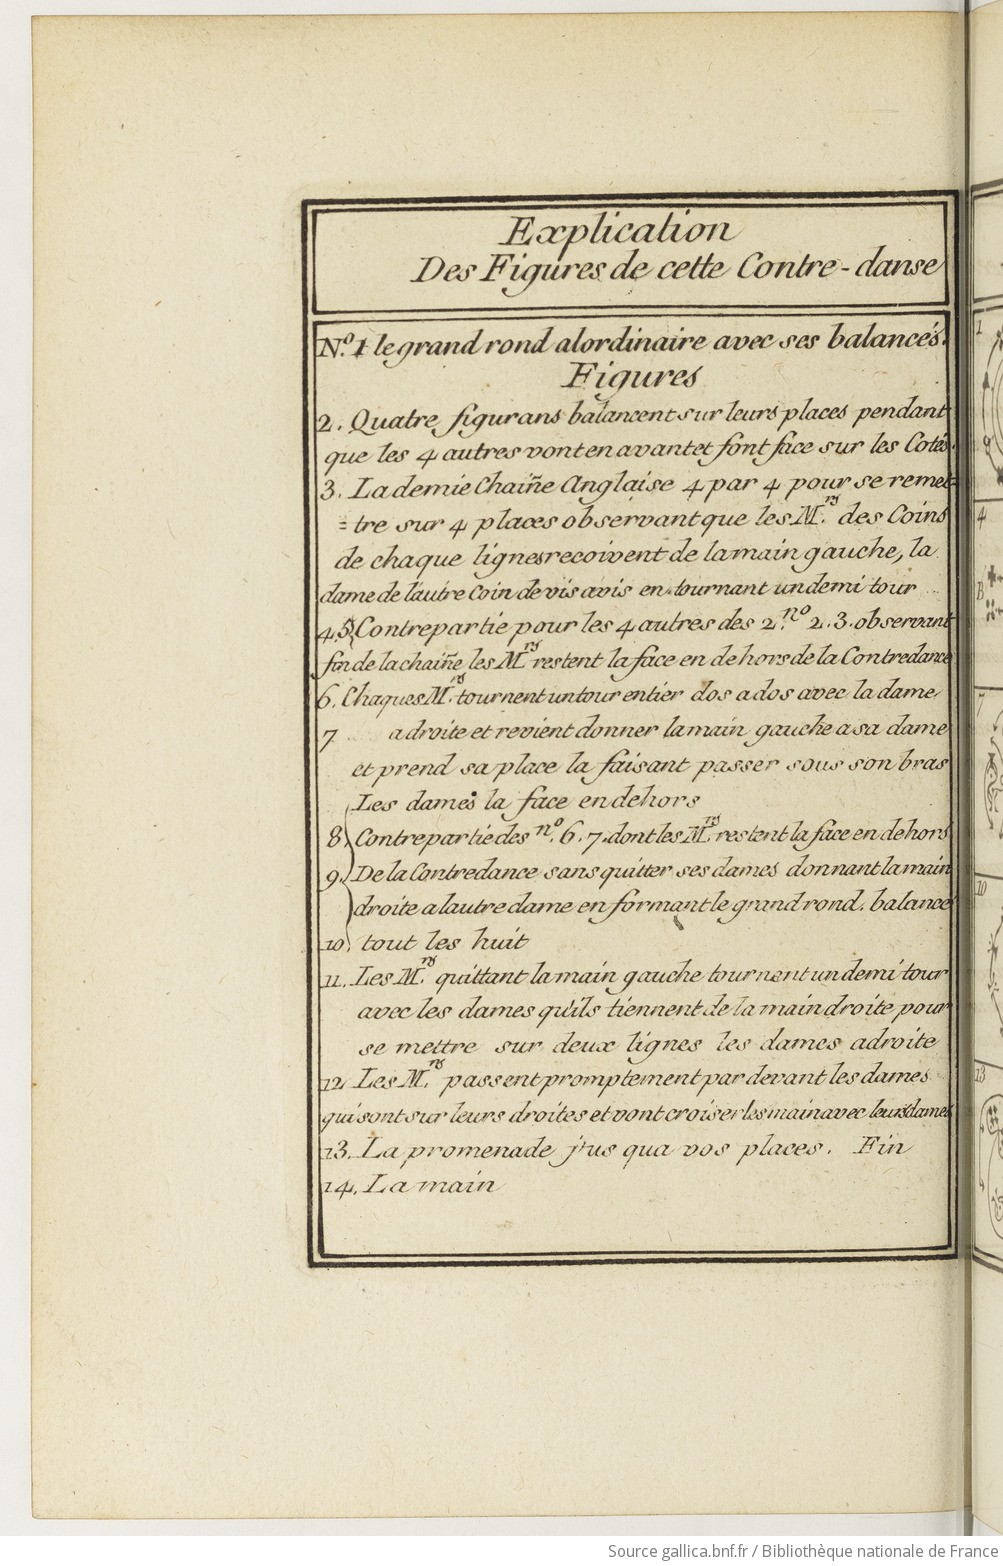 Explication
Des Figures de cette Contre-danse
N.º 1 le grand rond alordinaire avec ses balancés.
Figures
2. Quatre figurans balancent sur leurs places pendant
que les 4 autres vont en avant et font face sur les Cotés.
3. La demie Chaiñe Anglaise 4 par 4 pour se remet
=tre sur 4 places observant que les M.rs des Coins
de chaque lignes recoivent de la main gauche, la
dame de lautre Coin de vis avis en tournant un demi tour
4.5 Contrepartie pour les 4 autres des 2. nº 2.3. observant
fin de la chaiñe les M.rs restent la face en dehors de la Contredance
6. Chaques M.rs tournent un tour entier dos a dos avec la dame
7 a droite et revient donner la main gauche a sa dame
et prend sa place la faisant passer sous son bras
Les dames la face en dehors
8. Contrepartie des nº. 6.7. dont les M.rs restent la face en dehors
9. De la Contredance sans quitter ses dames donnant la main
droite a lautre dame en formant le grand rond. balancé
10. tout les huit
11. Les M.rs quittant la main gauche tournent un demi tour
avec les dames qu'ils tiennent de la main droite pour
se mettre sur deux lignes les dames adroite
12. Les M.rs passent promptement par devant les dames
qui sont sur leurs droites et vont croiser les main avec leurs dames
13. La promenade j'us qua vos places. Fin
14. La main
1
4
B
7
10
13
Source gallica.bnf.fr / Bibliothèque nationale de France